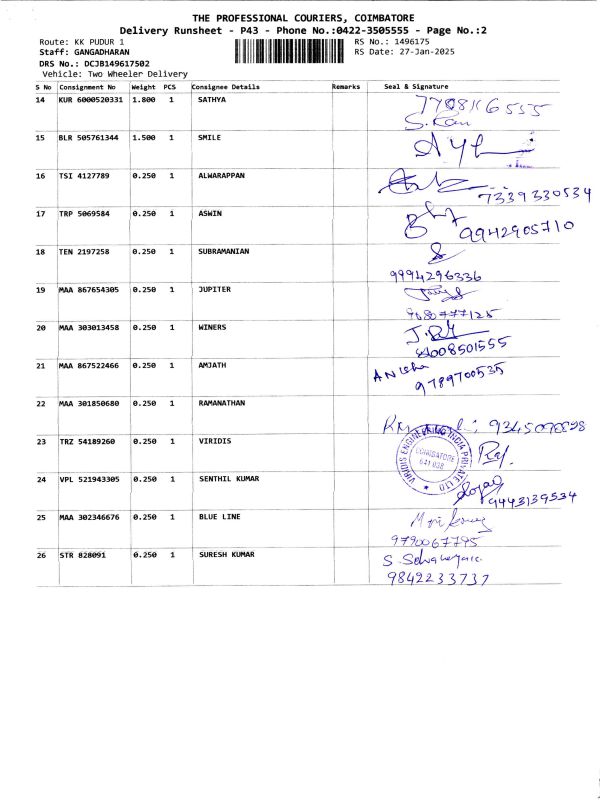 THE PROFESSIONAL COURIERS, COIMBATORE
Delivery Runsheet - P43 - Phone No.:0422-3505555 - Page No.:2
Route: KK PUDUR 1 RS No.: 1496175
Staff: GANGADHARAN RS Date: 27-Jan-2025
DRS No.: DCJB149617502
Vehicle: Two Wheeler Delivery
S No Consignment No Weight PCS Consignee Details Remarks Seal & Signature
14 KUR 6000520331 1.800 1 SATHYA
15 BLR 505761344 1.500 1 SMILE
16 TSI 4127789 0.250 1 ALWARAPPAN 7339330534
17 TRP 5069584 0.250 1 ASWIN 9942905710
18 TEN 2197258 0.250 1 SUBRAMANIAN
9994296336
19 MAA 867654305 0.250 1 JUPITER
20 MAA 303013458 0.250 1 WINERS
21 MAA 867522466 0.250 1 AMJATH
9789700535
22 MAA 301850680 0.250 1 RAMANATHAN
23 TRZ 54189260 0.250 1 VIRIDIS
VIRIDIS ENGINEERING INDIA PRIVATE LTD
COIMBATORE
641 038
24 VPL 521943305 0.250 1 SENTHIL KUMAR
9443139534
25 MAA 302346676 0.250 1 BLUE LINE
9790067795
26 STR 828091 0.250 1 SURESH KUMAR
9842233737